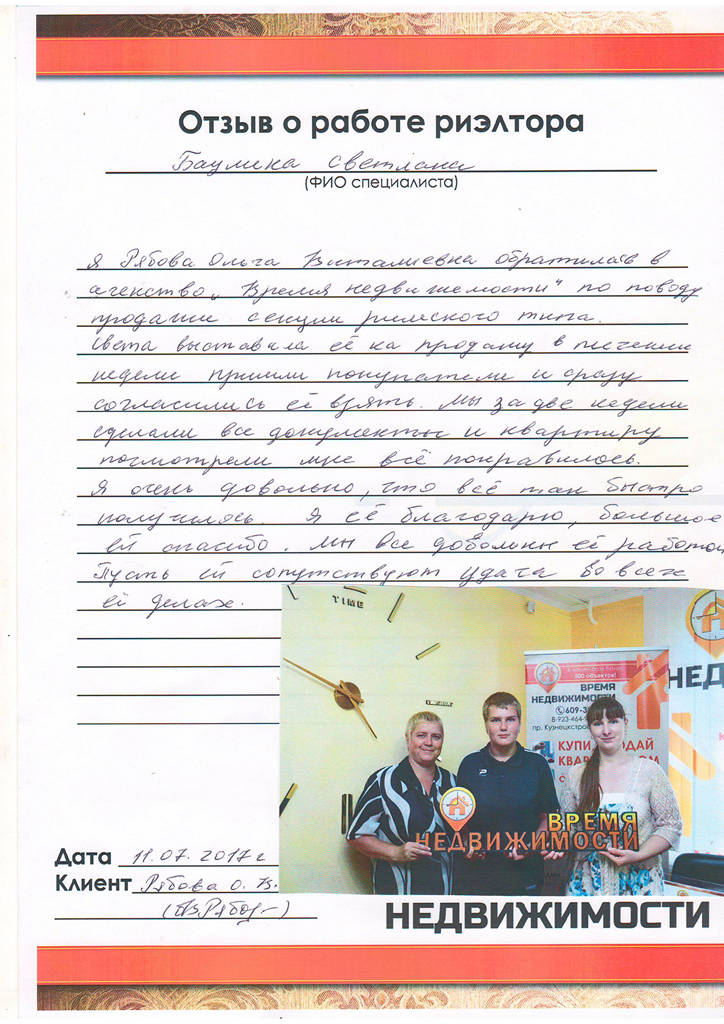 Отзыв о работе риэлтора
Баумина Светлана
(ФИО специалиста)
Я Рябова Ольга Виталиевна обратилась в
агенство „Время недвижемости" по поводу
продажи секции римского типа.
Света выставила её на продажу в течении
недели пришли покупатели и сразу
согласились её взять. Мы за две недели
сделали все документы и квартиру
посмотрели мне всё понравилось.
Я очень довольно, что всё так быстро
получилось. Я её благодарю, большое
ей спасибо. Мы все довольны её работой
Пусть ей сопутствуют удача во всех
её делах.
TIME
500 объектов!
ВРЕМЯ
НЕДВИЖИМОСТИ
609-3
8-923-464-
пр. Кузнецкстрое
КУПИ ПРОДАЙ
НЕД
ВРЕМЯ
НЕДВИЖИМОСТИ
Дата 11.07.2017 г
Клиент Рябова О. В.
НЕДВИЖИМОСТИ